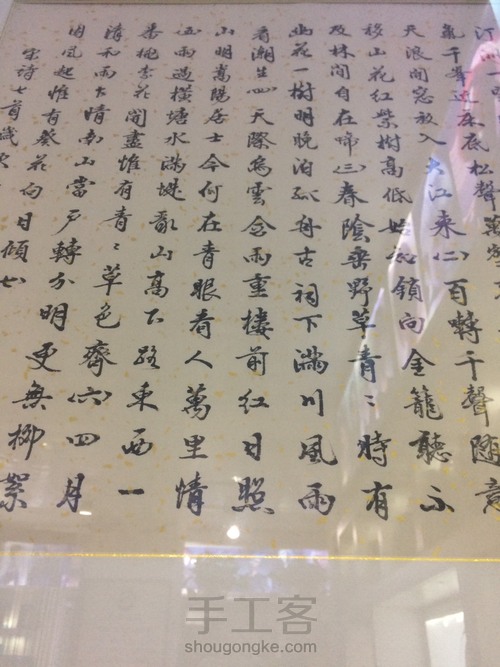 氣千峯近床底松聲萬壑
天浪開窓放入大江来(二)百囀千聲隨意
移山花紅紫樹高低始知鎖向金籠聽不
及林間自在啼(三)春陰垂野草青〻時有
幽花一樹明晚泊孤舟古祠下滿川風雨
看潮生(四)天際烏雲含雨重樓前紅日照
山明嵩陽居士今何在青眼看人萬里情
(五)雨過橫塘水滿堤亂山高下路東西一
番桃李花開盡惟有青〻草色齊(六)四月
清和雨乍晴南山當戶轉分明更無柳絮
因風起惟有葵花向日傾(七)
宋詩七首歲次
手工客
shougongke.com